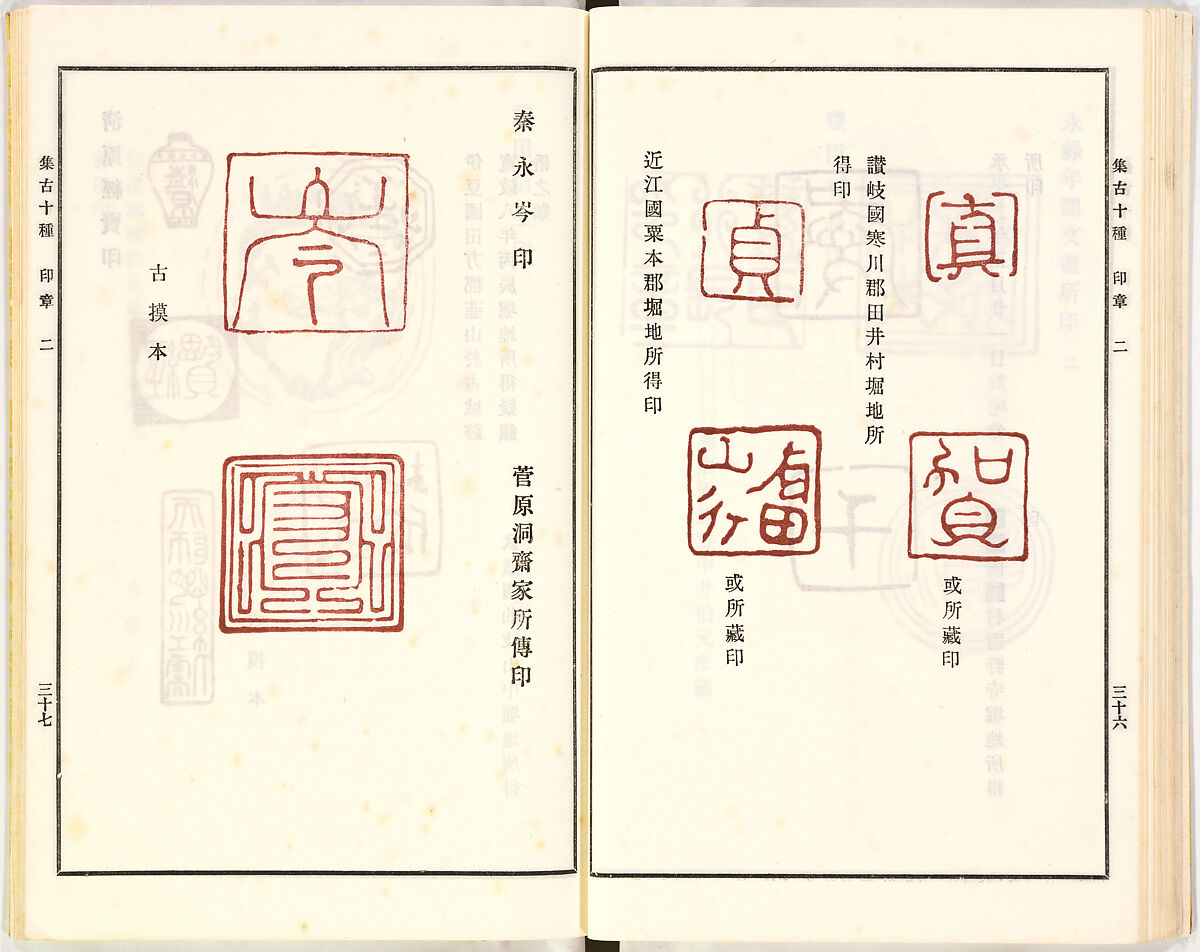 集古十種 印章 二 三十六
真
賀
或所藏印
讚岐國寒川郡田井村堀地所
得印
貞
或所藏印
近江國粟本郡堀地所得印
秦永岑印
菅原洞齋家所傳印
岑
古摸本
集古十種 印章 二 三十七